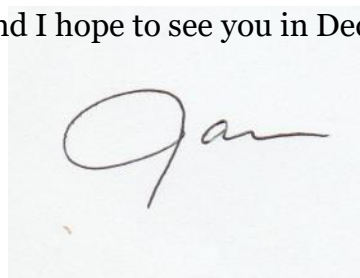 nd I hope to see you in Dec